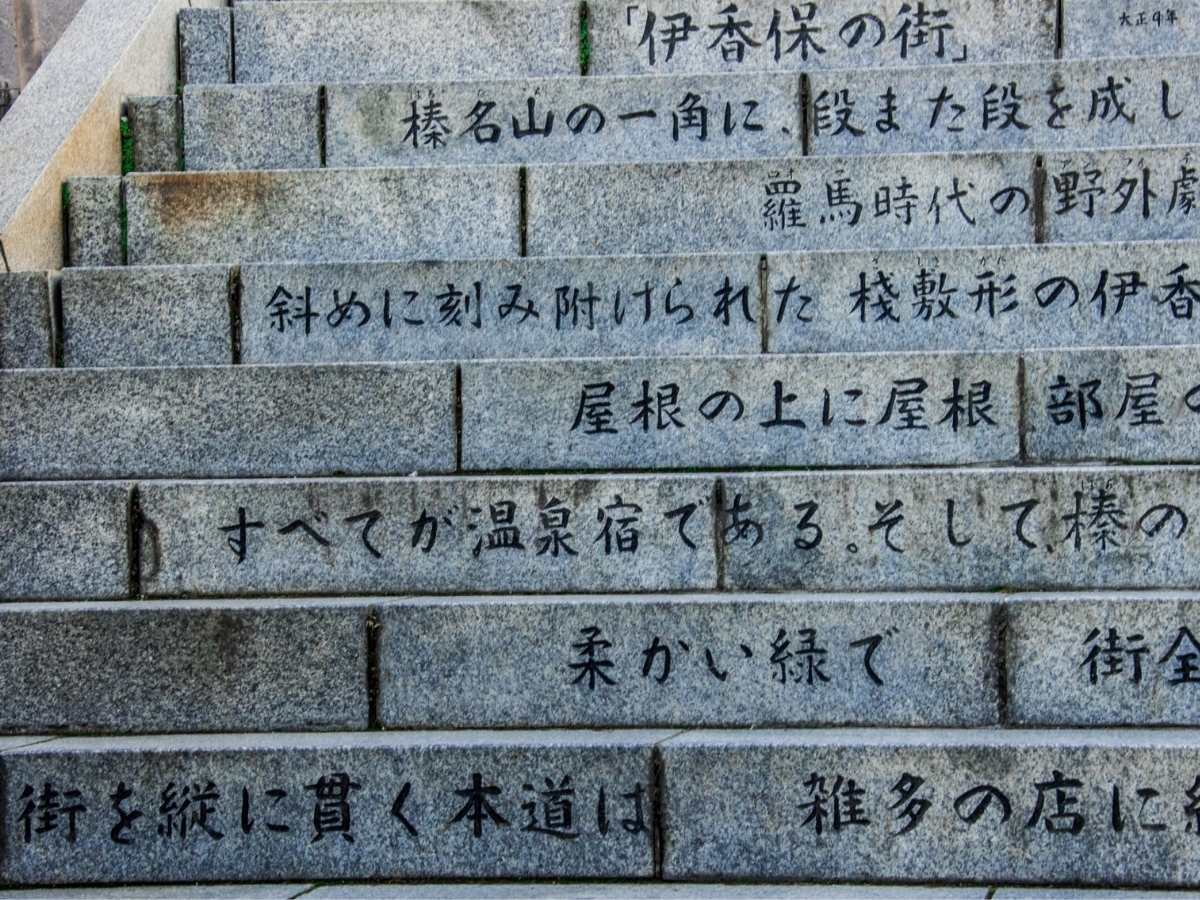 「伊香保の街」 大正4年
榛名山の一角に、段また段を成し
羅馬時代の野外劇
斜めに刻み附けられた 桟敷形の伊香
屋根の上に屋根 部屋の
すべてが温泉宿である。そして、榛の
柔かい緑で 街全
街を縦に貫く本道は 雑多の店に